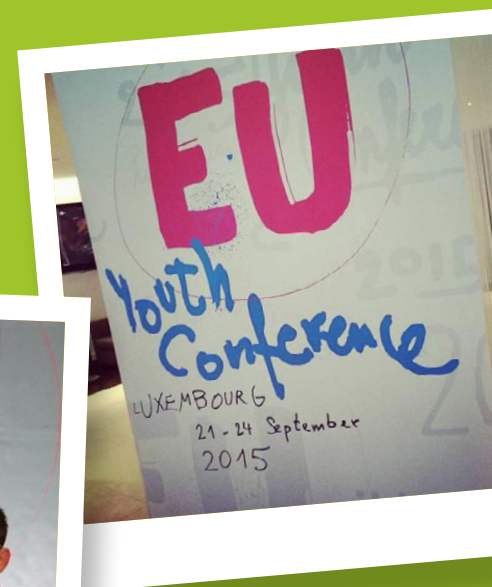 EU
Youth
Conference
LUXEMBOURG
21-24 September
2015
2015